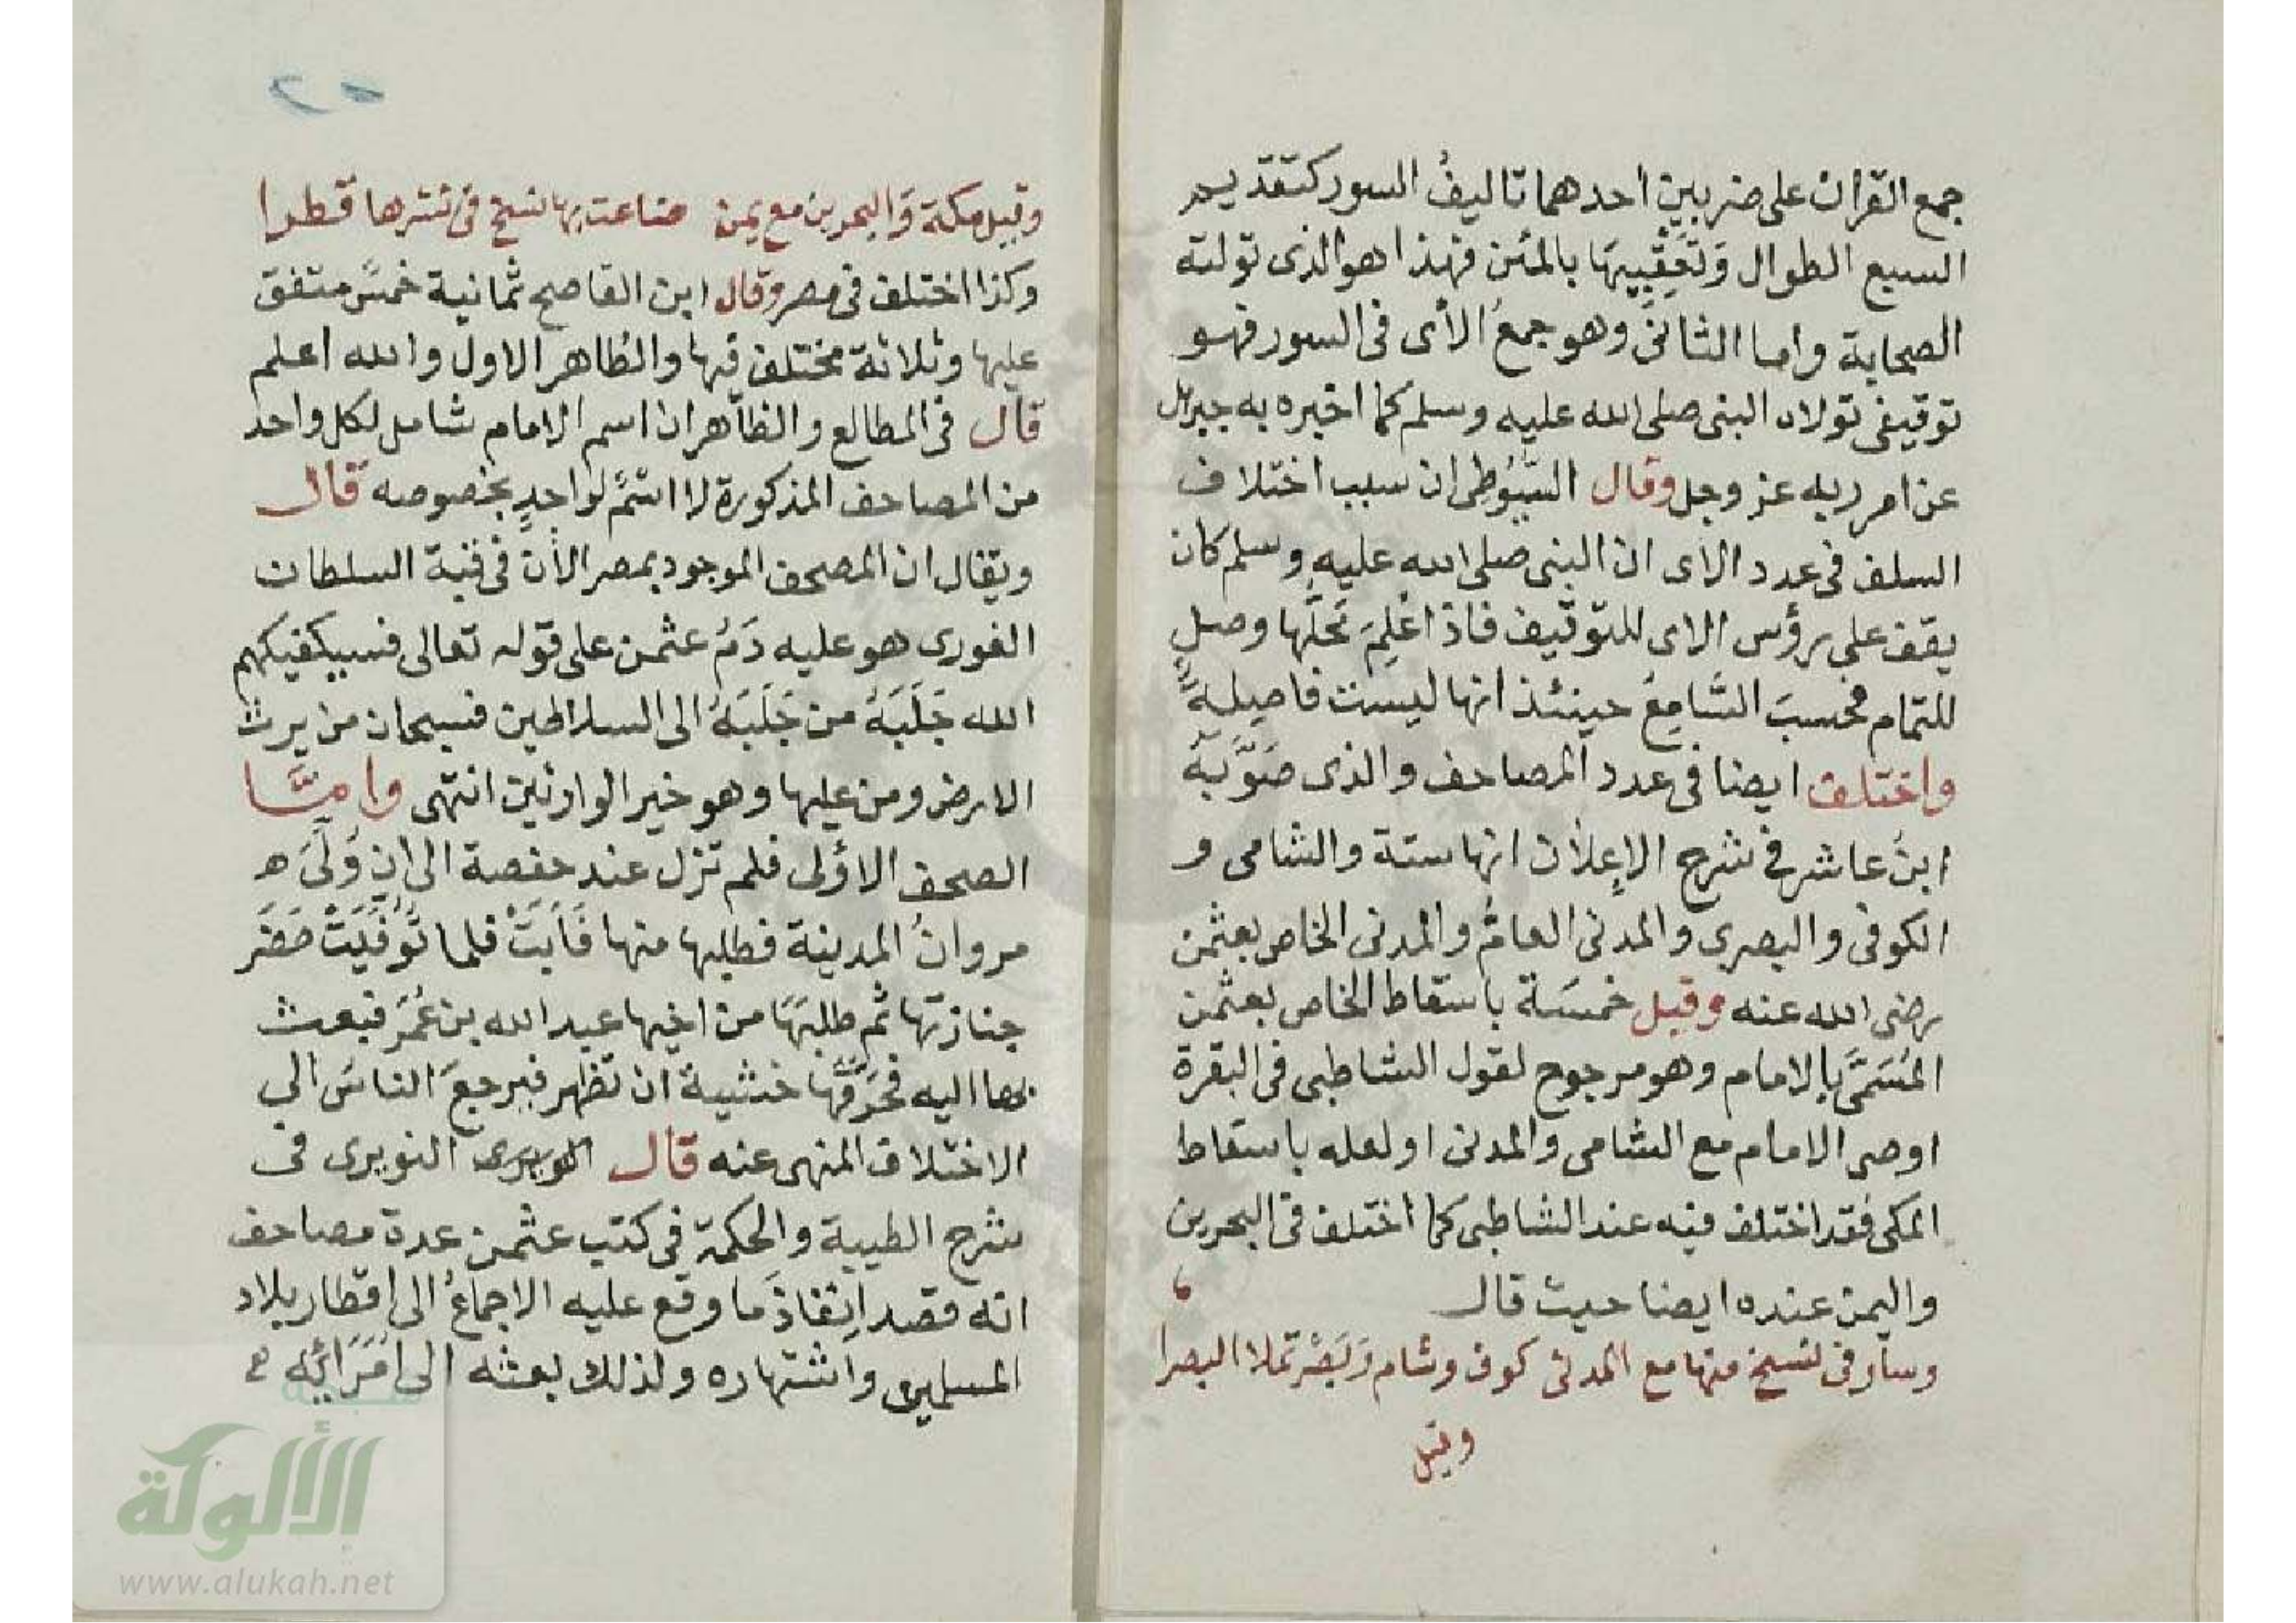 جمع القران على ضربين احدهما تاليفُ السور كتقديم
السبع الطوال وَتعقِيبِهَا بالمئن فهذا هو الذى تولته
الصحابة واما الثانى وهو جمعُ الأى فى السور فهو
توقيفى تولاه النبى صلى الله عليه وسلم كما اخبره به جبريل
عن امر ربه عز وجل وقال السُّيُوطِى ان سبب اختلاف
السلف فى عدد الاى ان النبى صلى الله عليه وسلم كان
يقف على رؤس الاى للتوقيف فاذا عُلِمَ مَحَلّها وصل
للتمام فحسبَ السَّامِعُ حينئذ انها ليست فاصِلةً
واختلف ايضا فى عدد المصاحف والذى صَوَّبَهُ
ابنُ عاشر فى شرح الإعلان انها ستة والشامى و
الكوفى والبصرى والمدنى العامُّ والمدنى الخاص بعثمن
رضى الله عنه وقيل خمسَة باسقاط الخاص بعثمن
المُسَمَّى بالامام وهو مرجوح لقول الشاطبى فى البقرة
اوصى الامام مع الشامى والمدنى او لعله باسقاط
المكى فقد اختلف فيه عند الشاطبى كما اختلف فى البحرين
واليمن عنده ايضا حيث قال
وسار فى نسخ منها مع المدنى كوف وشام وَبَصْرٍ تملا البصرا
وقيل
وقيل مكة وَالبحرين مع يمن ضاعت بها نسخ فى نشرها قطرا
وكذا اختلف فى مصر وقال ابن القاصح ثمانية خمسٌ متفق
عليها وثلاثة مختلف فيها والظاهر الاول والله اعلم
قال فى المطالع والظاهر ان اسم الامام شامل لكل واحد
من المصاحف المذكورة لا اسمٌ لواحدٍ بخصوصه قال
ويقال ان المصحف الموجود بمصر الأن فى قبة السلطان
الغورى هو عليه دَمُ عثمن على قوله تعالى فسيكفيكهم
الله جَلَبَهُ من جَلَبَهُ الى السلاطين فسبحان من يرث
الارض ومن عليها وهو خير الوارثين انتهى وامَّا
الصحف الاؤلى فلم تزل عند حفصة الى ان وُلِّىَ
مروانُ المدينة فطلبها منها فَاَبَتْ فلما تُوُفِّيَتْ حَضَرَ
جنازتها ثم طلبَهَا من اخيها عبد الله بن عُمَرَ فبعث
بها اليه فحَرَّقَهَا خشية ان تظهر فيرجعَ الناسُ الى
الاختلاف المنهى عنه قال النويرى فى
شرح الطيبة والحكمة فى كتب عثمن عدة مصاحف
انه قصد اِنفاذَ ما وقع عليه الاجماعُ الى اقطار بلاد
المسلمين واشتهاره ولذلك بعثه الى اُمَرَائِه
الألوكة
www.alukah.net